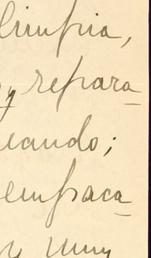 limpia,
y repara
eando;
empaca
y muy